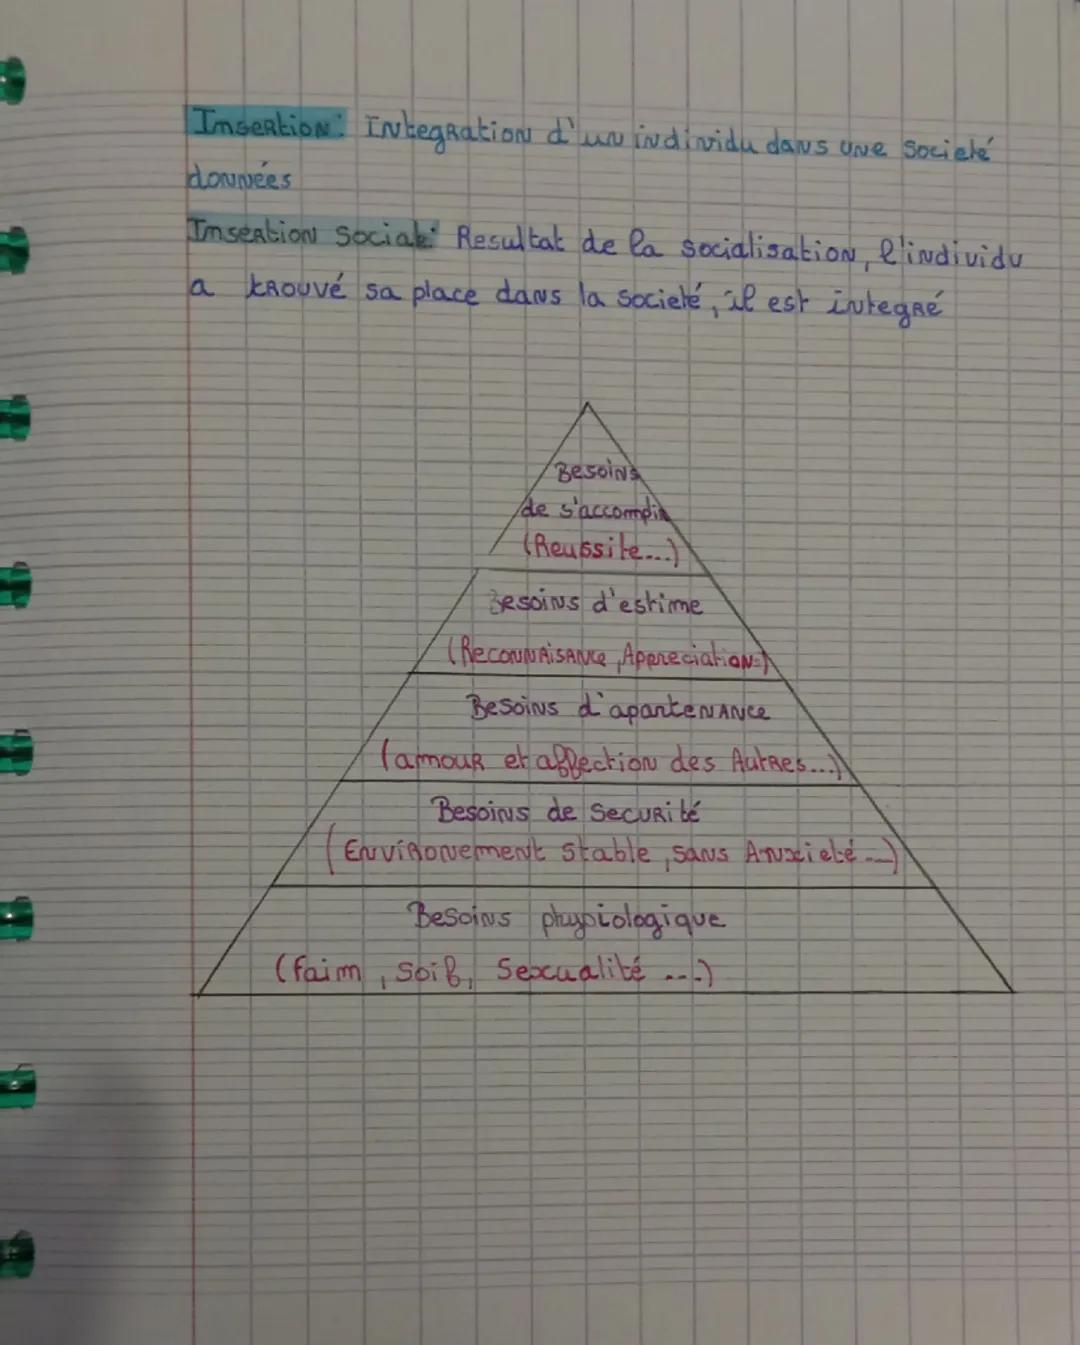 Insertion: Integration d'un individu dans une societé
données
Insertion Social: Resultat de la socialisation, l'individu
a trouvé sa place dans la societé, il est integré
Besoins
de s'accomplir
(Reussite...)
Besoins d'estime
(Reconnaisance, Appreciation..)
Besoins d'apartenance
(amour et affection des Autres...)
Besoins de Securité
(Environement stable, sans Anxieté...)
Besoins physiologique
(faim, soif, Sexualité ...)